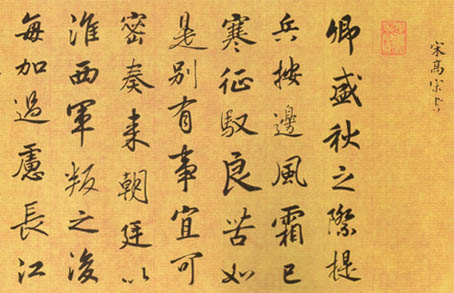 宋高宗
卿盛秋之際提
兵按邊風霜已
寒征馭良苦如
是別有事宜可
密奏来朝廷以
淮西軍叛之後
每加過慮長江